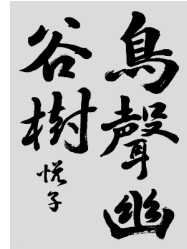 鳥聲幽
谷樹
悦子